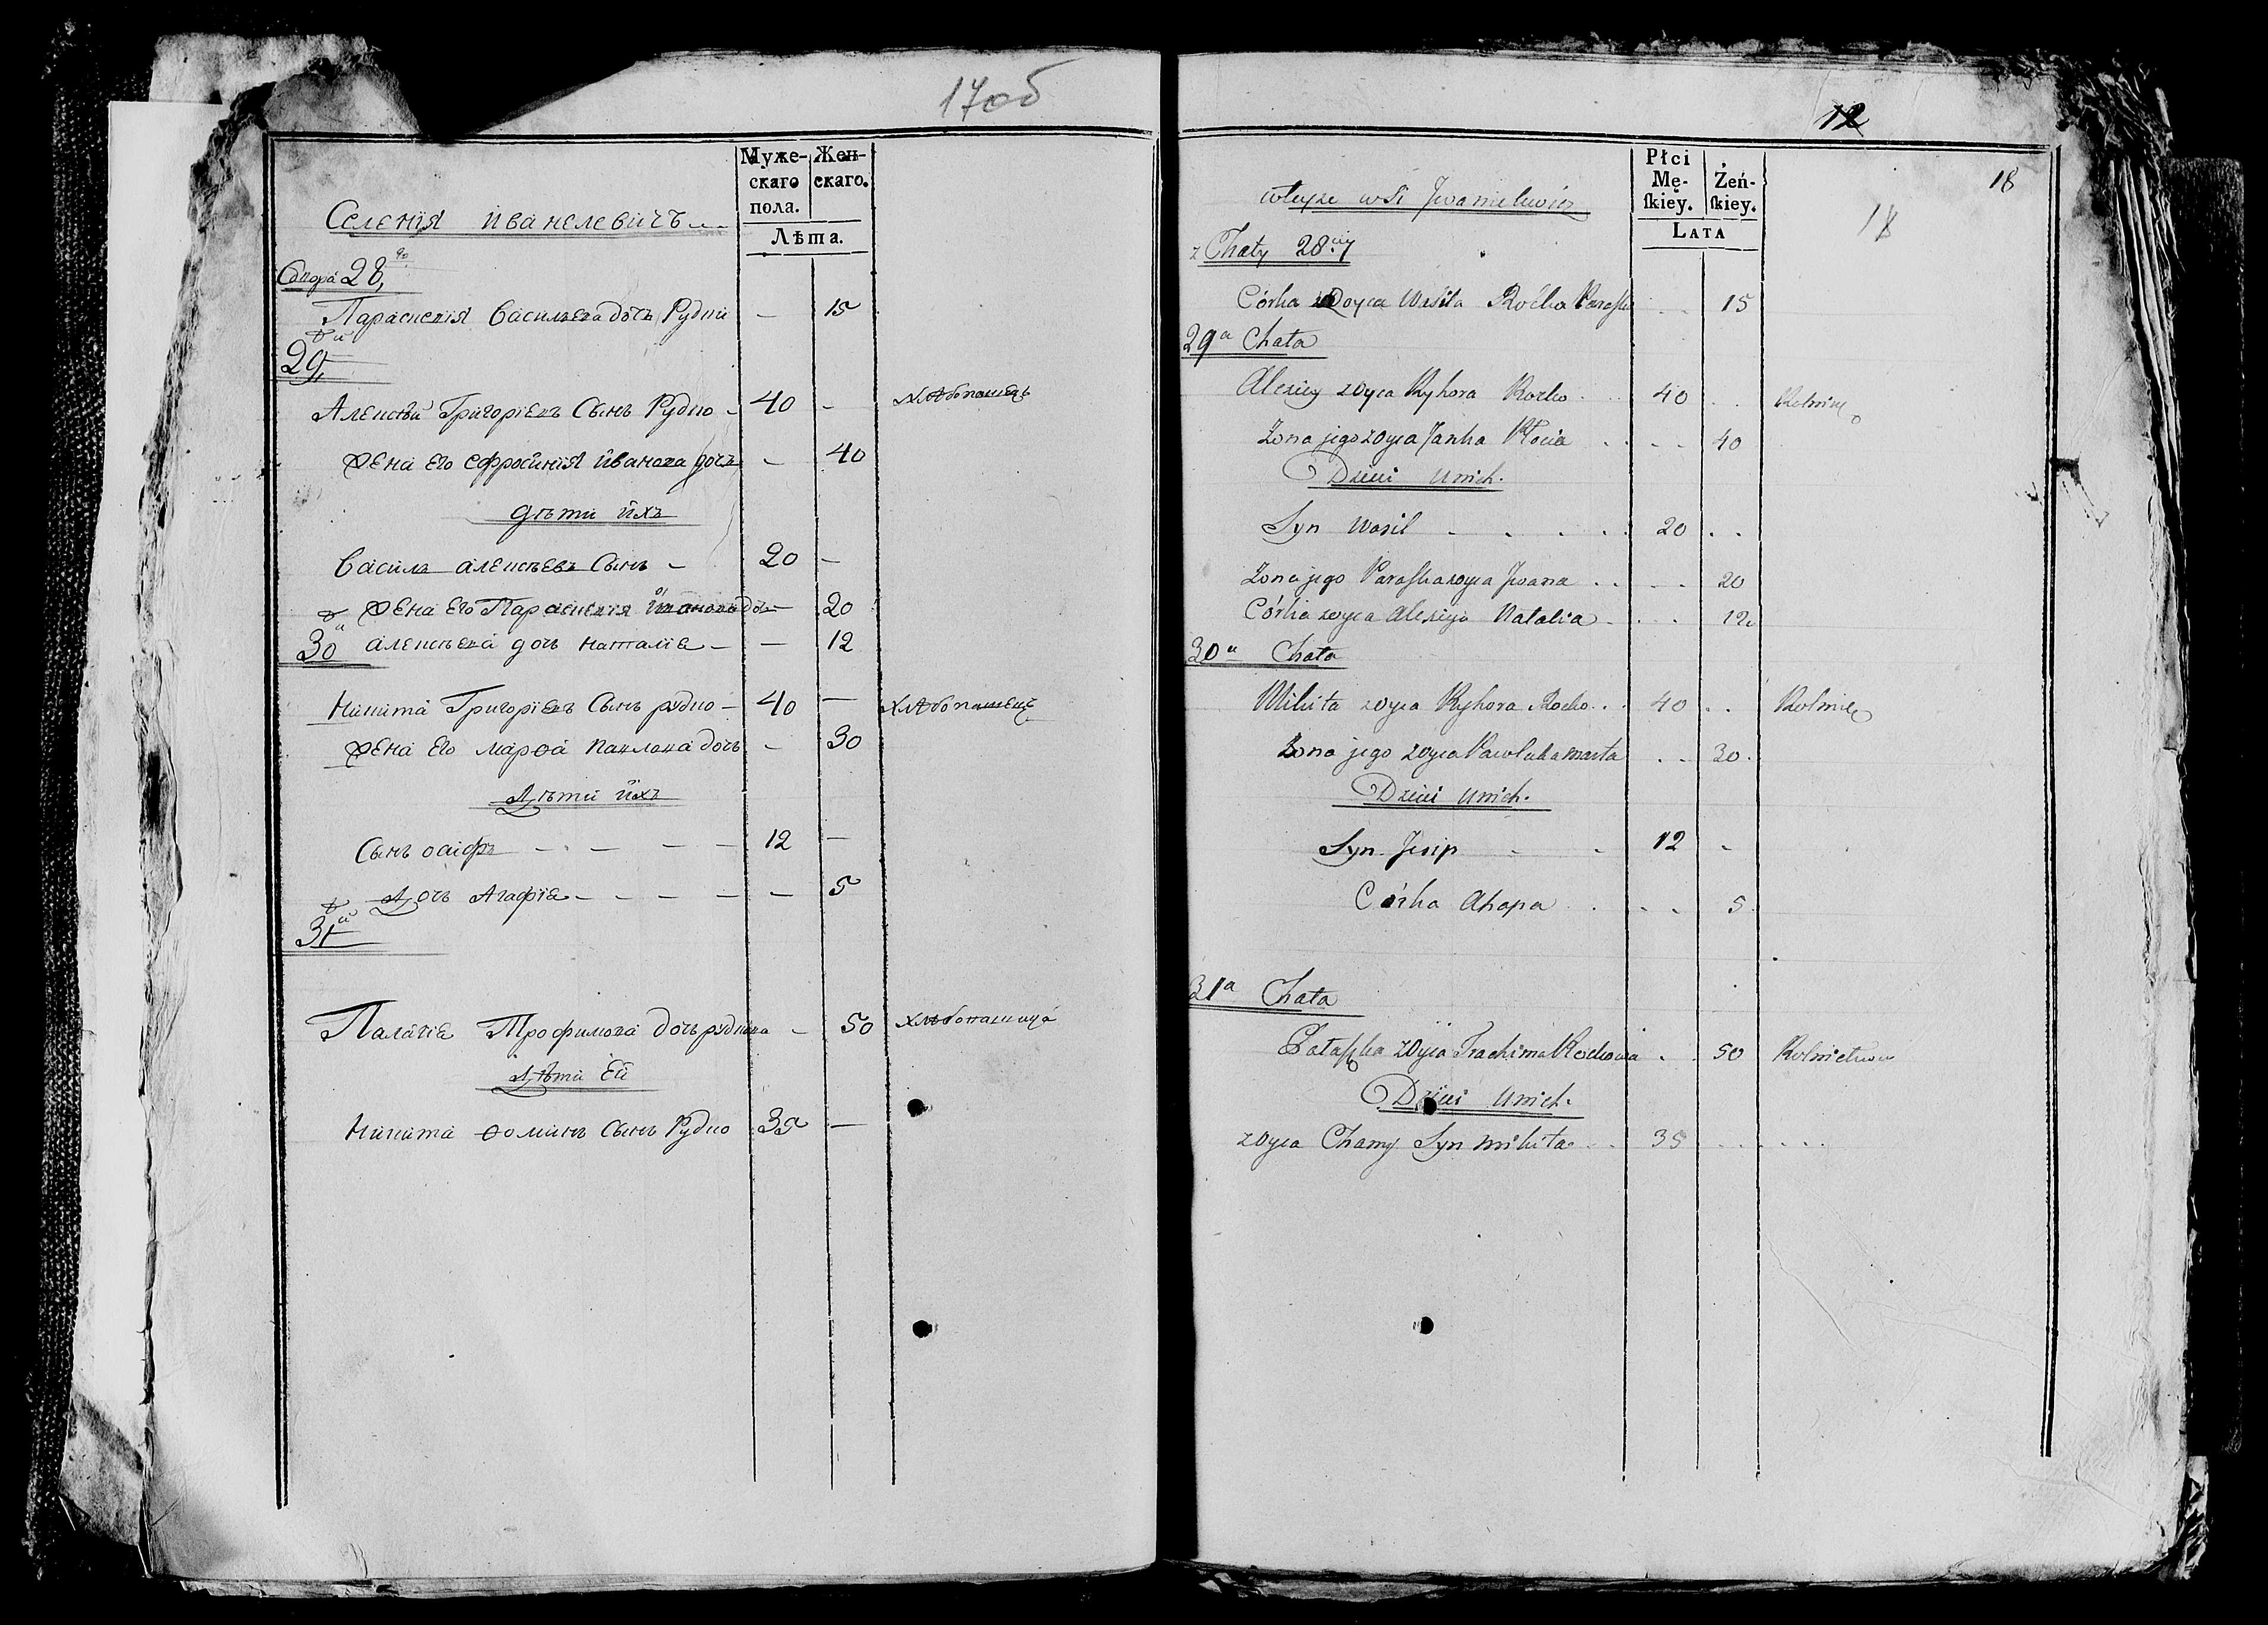 17об
Муже-
скаго
пола.
Жен-
скаго.
Лѣта.
Селенія Иванелевичъ
Двора 28го
Параскевія Васильева дочь Рудко — 15
29й
Алексѣй Григоріевъ Сынъ Рудко — 40 — хлѣбопашецъ
Жена Его Ефросинія Иванова дочь — 40
дѣти ихъ
Василь алексѣевъ Сынъ — 20 —
Жена Его Параскевія Иванова до — 20
алексѣева дочь наталіе — — 12
30й
Никита Григоріевъ Сынъ рудко — 40 — хлѣбопашецъ
Жена Его марѳа павлова дочь — 30
Дѣти ихъ
Сынъ осифъ — — — — 12 —
Дочь Агафіе — — — — — 5
31й
Палагіе Трофимова дочь рудкова — 50 хлѣбопашица
Дѣти Ей
Никита ѳоминъ Сынъ Рудко 35 —
12
18
18
Płci
Mę-
ſkiey.
Żeń-
ſkiey.
LATA
wteyże wsi Iwanilewicz
z Chaty 28ey
Córka zOyca Wasila Roćko Paraſka . . 15
29a Chata
Alexiey zOyca Ryhora Rocko . . 40 . . Rolnik
Żona jego zOyca Janka 40
Dzieci Unich.
Syn Wasil . . . . 20 . .
Żona jego Paraſka zoyca Jwana . . . . 20
Córka zoyca Alexieja Natalia . . . 12
30a Chata
Mikita zoyca Ryhora Rocko . . 40 . . Rolnik
Żona jego zoyca Pawluka Marta . . 30.
Dzieci Unich.
Syn Jesip . . 12 .
Córka Ahapa . . . 5.
31a Chata
Pałaſzka zOyca Trachima Rockowa . . 50 Rolnictwo
Dzieci Unich.
zOyca Chamy Syn Mikita . . 35 . . . . .